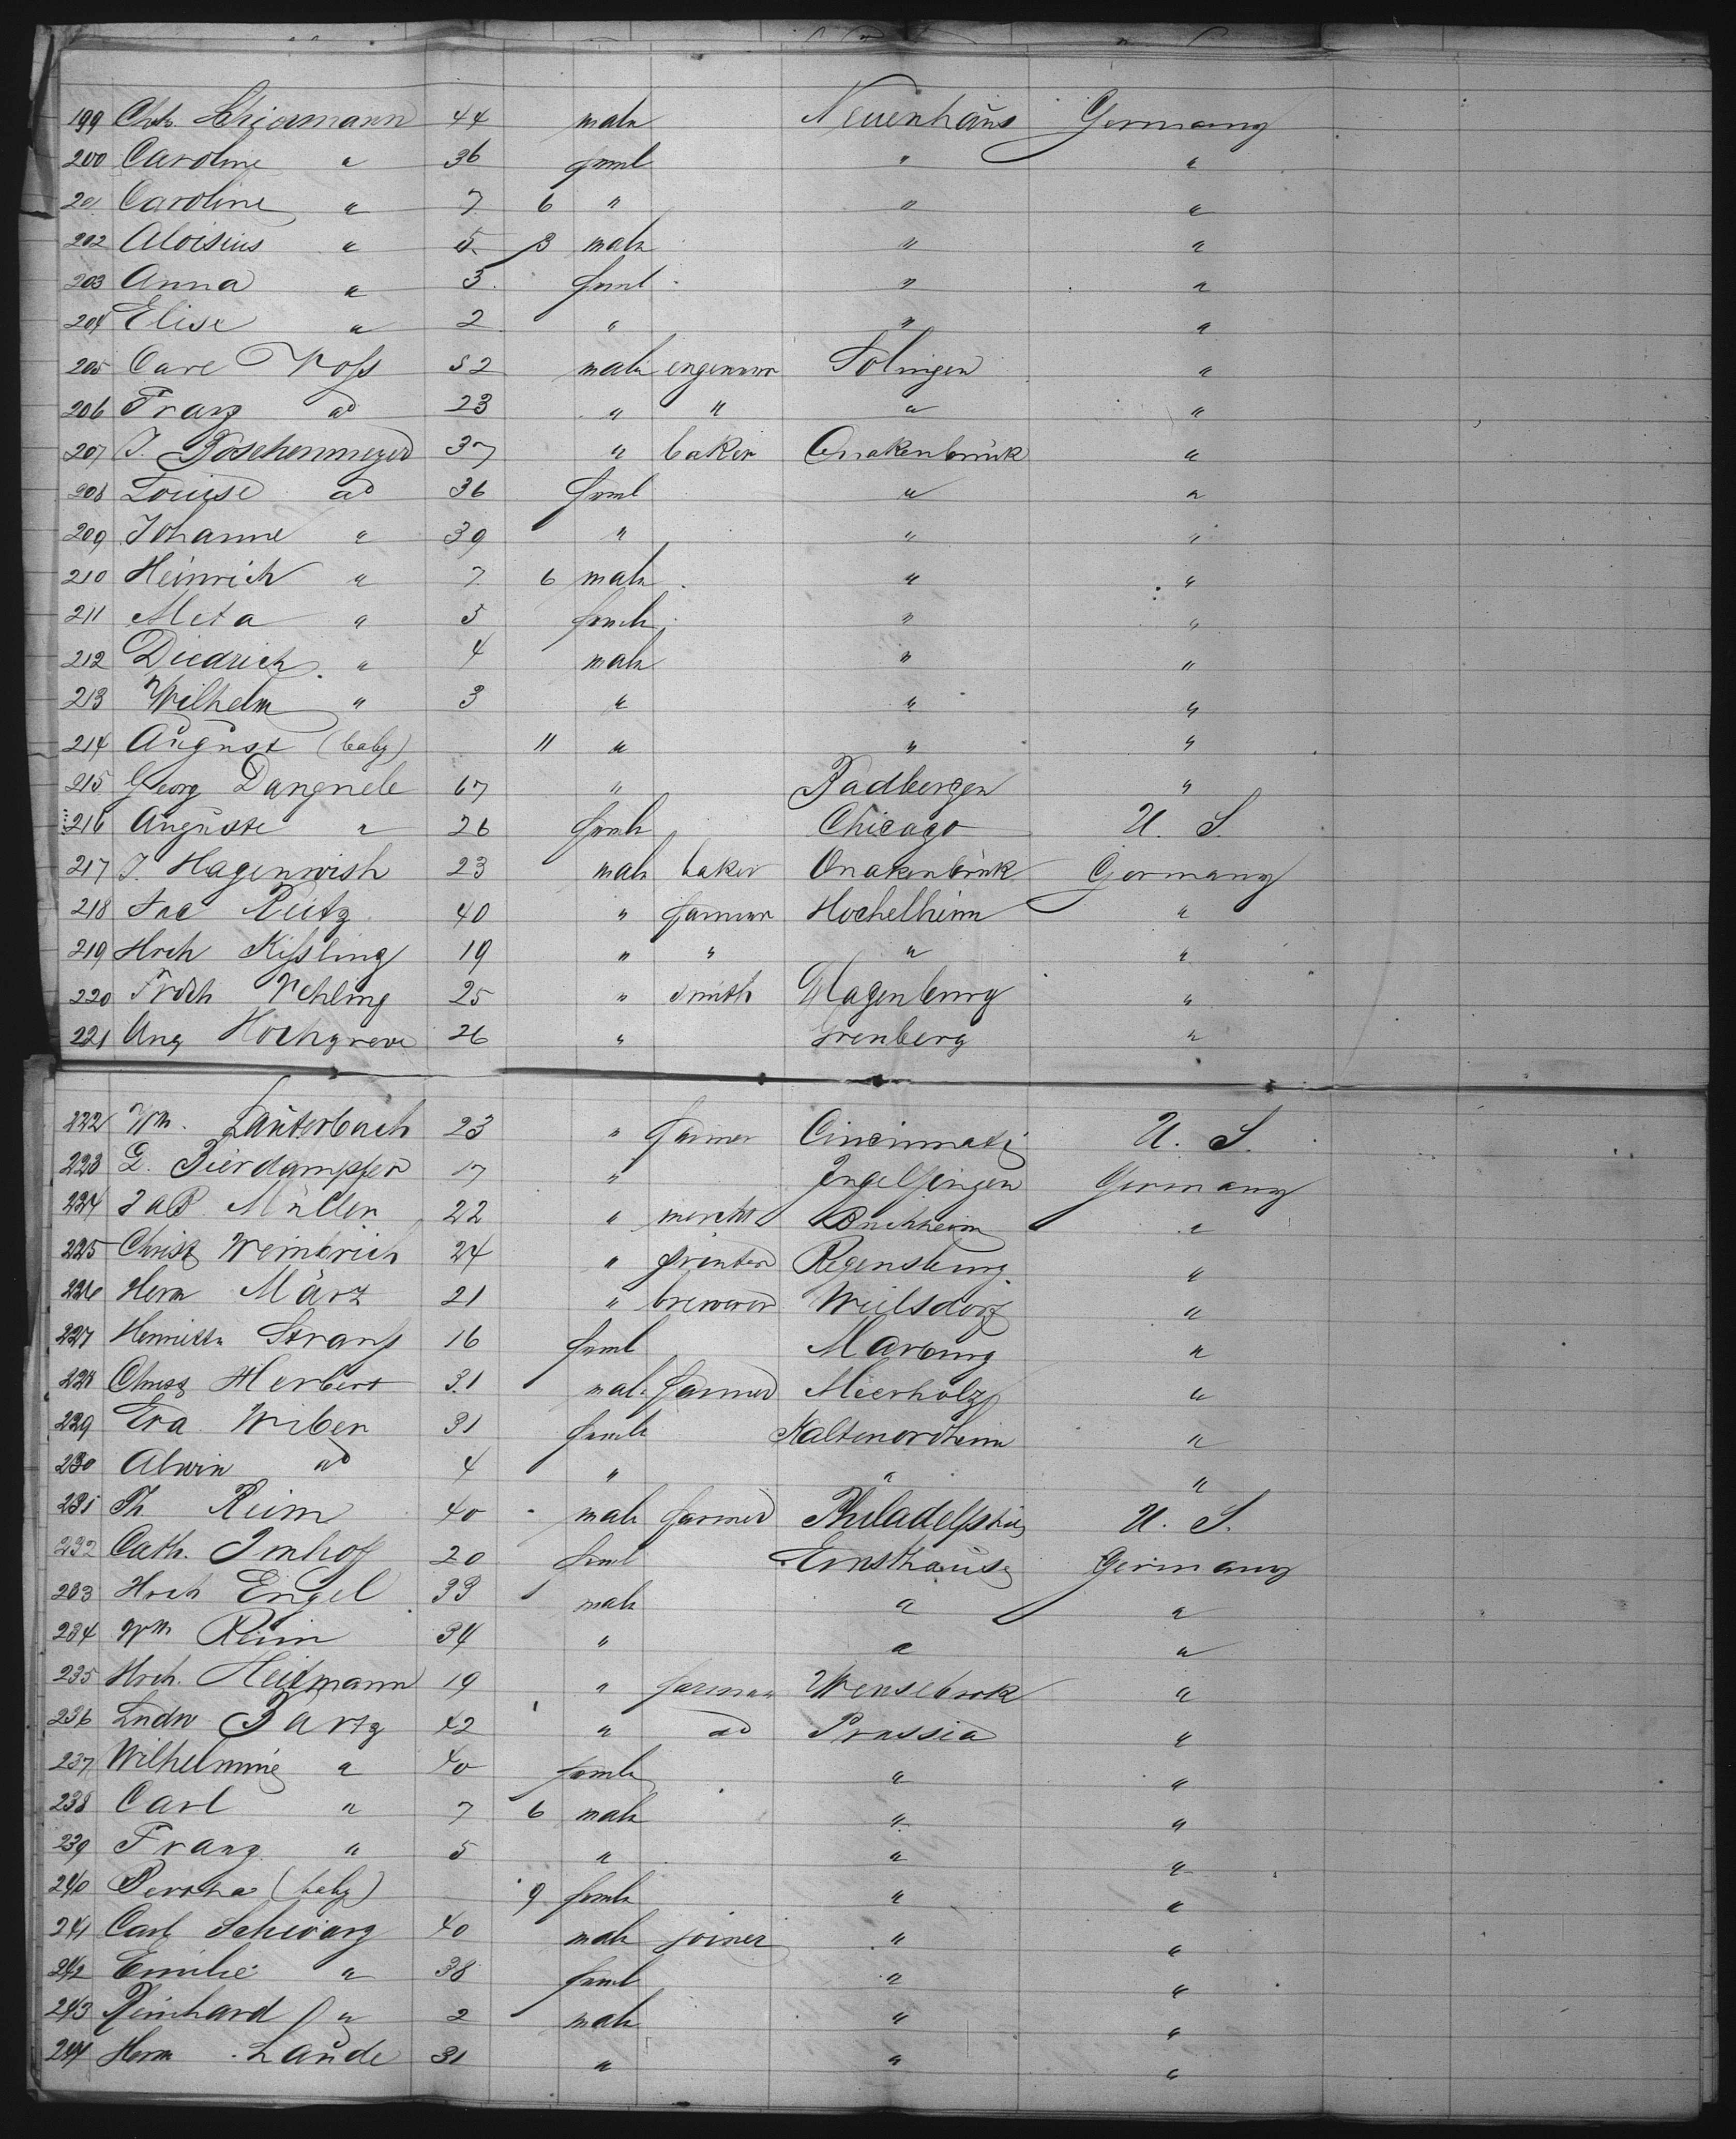 199 Chr. Schiermann 44 male Neuenhaus Germany
200 Caroline " 36 feml " "
201 Caroline " 7 6 " " "
202 Aloisius " 5 3 male " "
203 Anna " 3 feml " "
204 Elise " 2 " " "
205 Carl Voss 52 male engeneer Solingen "
206 Franz do 23 " " " "
207 J. Poschenmeyer 37 " baker Quakenbrück "
208 Louise do 36 feml " "
209 Johanne " 39 " " "
210 Heinrich " 7 6 male " "
211 Meta " 5 femle " "
212 Diedrich " 4 male " "
213 Wilhelm " 3 " " "
214 August (baby) 11 " " "
215 Georg Dangnele 67 " Badbergen "
216 Auguste " 26 femle Chicago U. S.
217 J. Hagenwish 23 male baker Quakenbrück Germany
218 Jac Reitz 40 " farmer Hochelheim "
219 Hrch Kissling 19 " " " "
220 Frdch Vehling 25 " smith Magenburg "
221 Aug Hochgreve 26 " Grenberg "
222 Wm. Lauterbach 23 " farmer Cincinnati U. S.
223 G. Bierdampfer 17 " Ingelfingen Germany
224 Jac Müller 22 " mercht Buchheim "
225 Christ Weinbrich 24 " printer Regensburg "
226 Herm März 21 " brewer Wielsdorf "
227 Henrietta Strauss 16 feml Marburg "
228 Christ Herbert 31 male farmer Meerholz "
229 Eva Wiber 31 femle Kaltenordheim "
230 Alwin do 4 " " "
231 Th. Reim 40 male farmer Philadelphia U. S.
232 Cath. Imhof 20 feml Ernsthause Germany
233 Hrch Engel 33 male " "
234 Wm Reim 34 " " "
235 Hrch. Heitmann 19 " farmer Wensebrok "
236 Ludw Bartz 42 " do Prussia "
237 Wilhelmine " 40 femle " "
238 Carl " 7 6 male " "
239 Franz " 5 " " "
240 Bertha (baby) 9 femle " "
241 Carl Schwarz 40 male joiner " "
242 Emilie " 38 feml " "
243 Reinhard " 2 male " "
244 Herm Laude 31 " " "